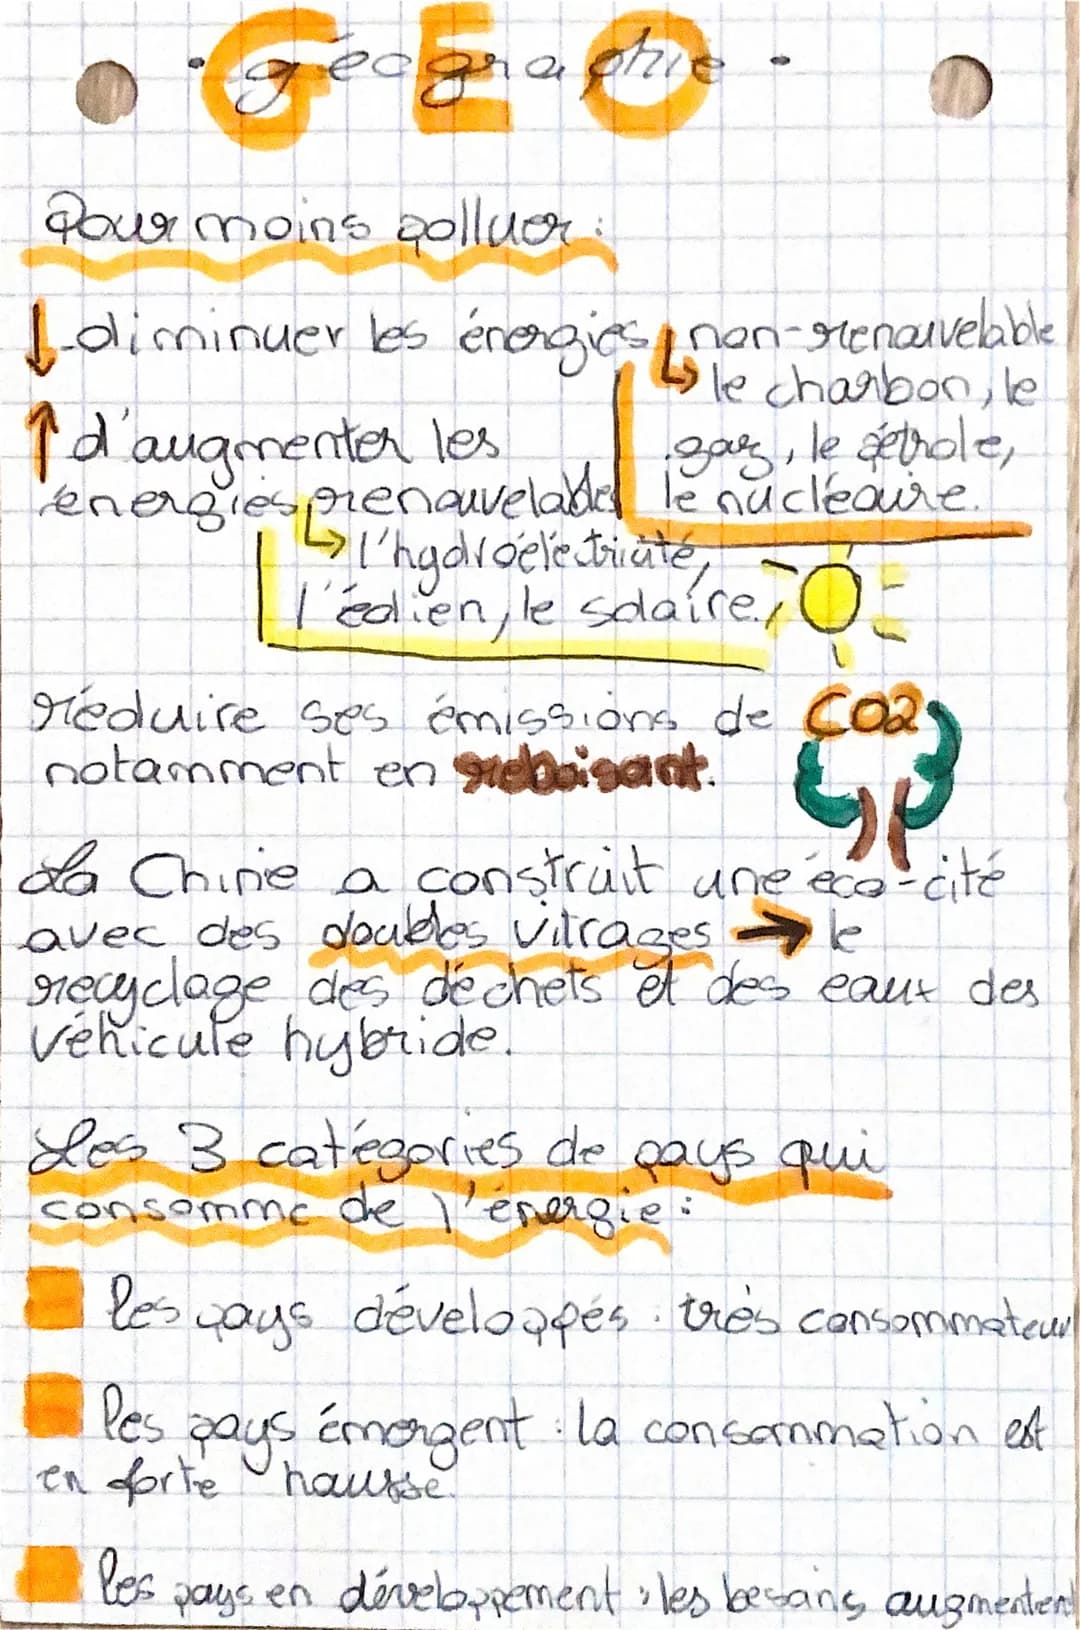 GEO
• géographie •
Pour moins polluer :
↓ diminuer les énergies non-renouvelable
↳ le charbon, le
gaz, le pétrole,
le nucléaire.
↑ d'augmenter les
énergies renouvelables
↳ l'hydroélectricité,
l'éolien, le solaire.
réduire ses émissions de CO2
notamment en reboisant.
La Chine a construit une éco-cité
avec des doubles vitrages → le
recyclage des déchets et des eaux des
véhicule hybride.
Les 3 catégories de pays qui
consomme de l'énergie :
les pays développés : très consommateur
les pays émergent : la consommation est
en forte hausse.
les pays en développement : les besoins augmentent